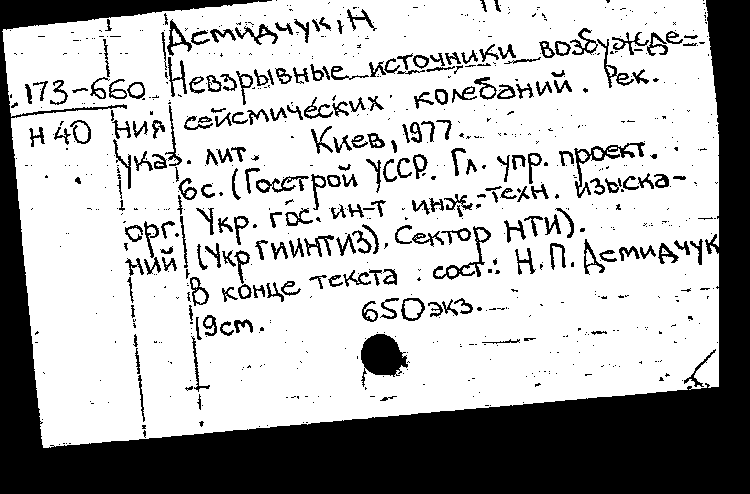 Демидчук, Н
173-660 Невзрывные источники возбужде-
Н 40 ния сейсмических колебаний. Рек.
указ. лит. Киев, 1977.
6с. (Госстрой УССР. Гл. упр. проект.
орг. Укр. гос. ин-т инж.-техн. изыска-
ний (Укр ГИИНТИЗ). Сектор НТИ).
В конце текста сост.: Н.П. Демидчук
19см. 650экз.